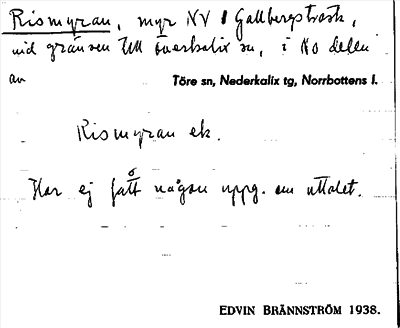 Rismyran, myr NV I Gallbergsträsk,
vid gränsen till Överkalix sn, i NO delen
av Töre sn, Nederkalix tg, Norrbottens l.
Rismyran ek.
Har ej fått någon uppg. om uttalet.
EDVIN BRÄNNSTRÖM 1938.